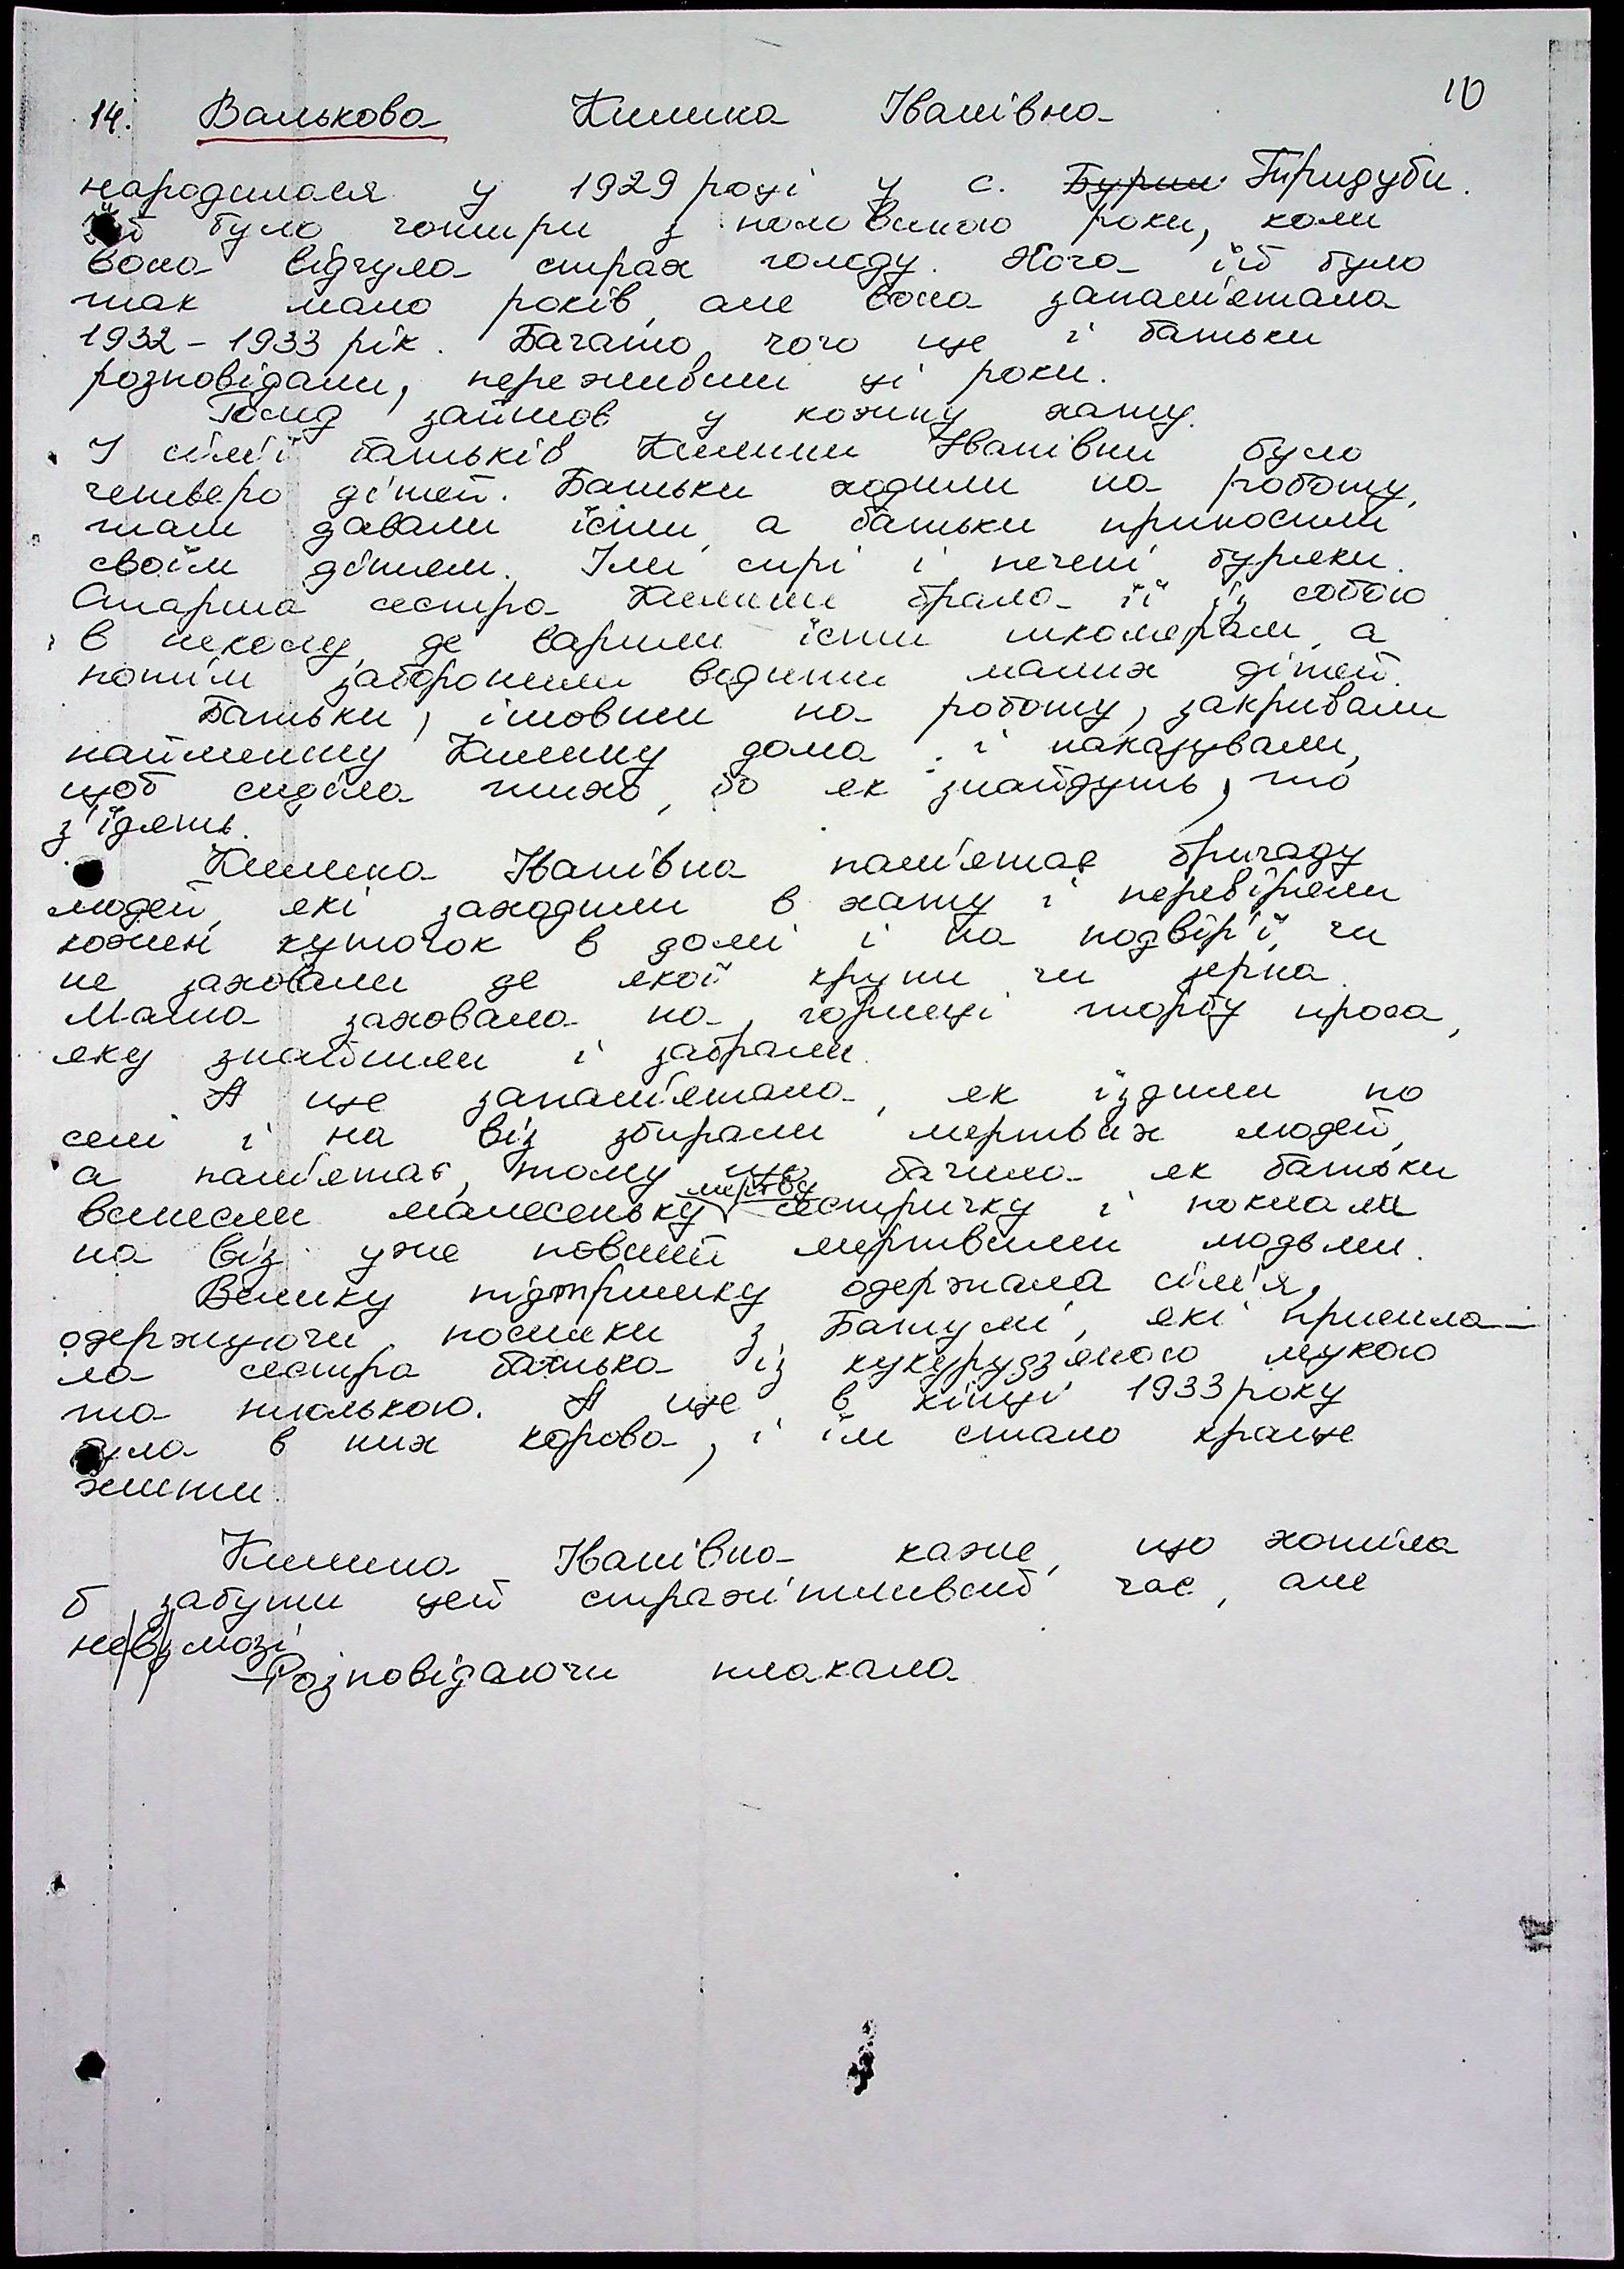 10
14. Валькова Килина Іванівна
народилася у 1929 році у с. Бурин Придуби.
Їй було чотири з половиною роки, коли
вона відчула страх голоду. Хоча їй було
так мало років, але вона запам'ятала
1932-1933 рік. Багато чого ще і батьки
розповідали, переживши ці роки.
Голод зайшов у кожну хату.
У сім'ї батьків Килини Іванівни було
четверо дітей. Батьки ходили на роботу,
там давали їсти, а батьки приносили
своїм дітям. Їли сирі і печені буряки.
Старша сестра Килини брала її із собою
в школу, де варили їсти школярам, а
потім заборонили водити малих дітей.
Батьки, ішовши на роботу, закривали
найменшу Килину дома і наказували,
щоб сиділа тихо, бо як знайдуть, то
з'їдять.
Килина Іванівна пам'ятає бригаду
людей, які заходили в хату і перевіряли
кожен куточок в домі і на подвір'ї, чи
не заховали де якої крупи чи зерна.
Мама заховала на горищі торбу проса,
яку знайшли і забрали.
А ще запам'ятала, як їздили по
селі і на віз збирали мертвих людей,
а пам'ятає, тому що бачила як батьки
винесли малесеньку мертву сестричку і поклали
на віз уже повний мертвими людьми.
Велику підтримку одержала сім'я,
одержуючи посилки з Батумі, які присила-
ла сестра батька із кукурудзяною мукою
та тюлькою. А ще в кінці 1933 року
була в них корова, і їм стало краще
жити.
Килина Іванівна каже, що хотіла
б забути цей страхітливий час, але
не в змозі.
Розповідаючи плакала